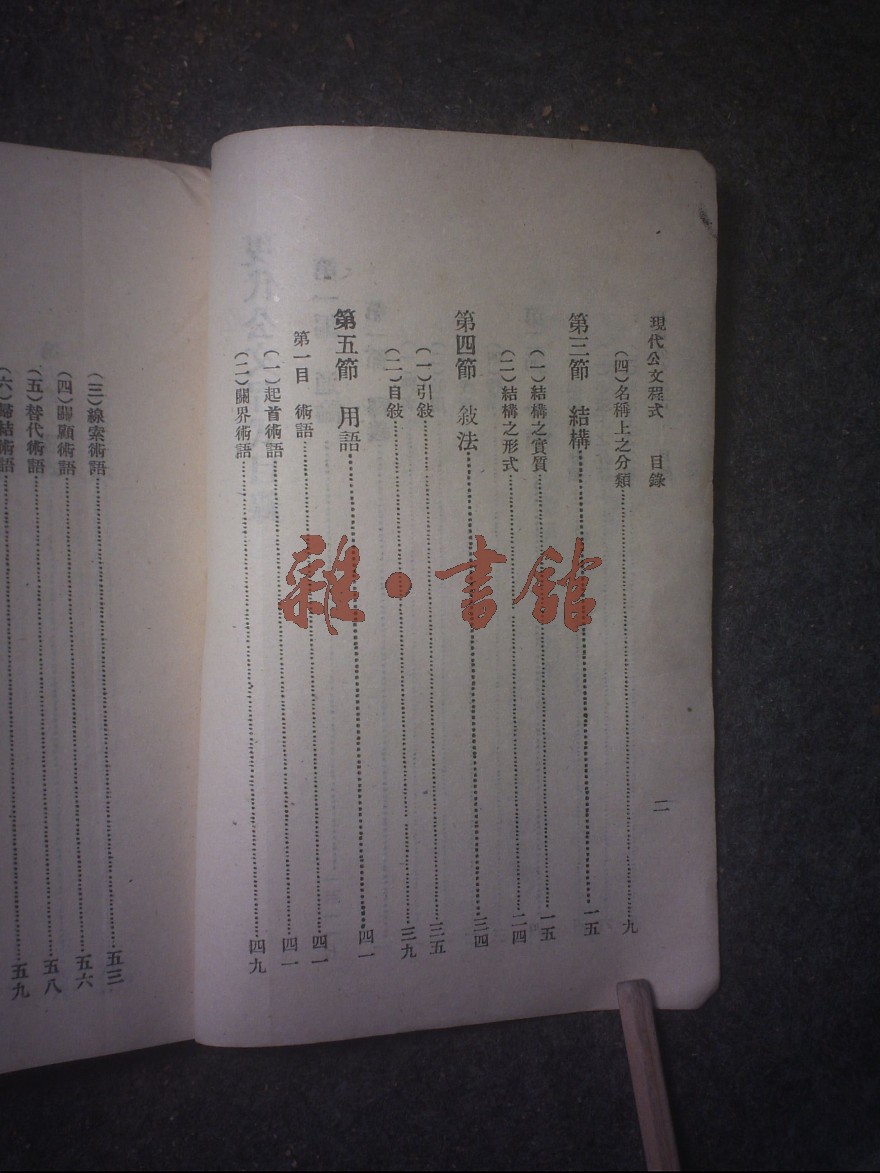 現代公文程式 目錄 二
(四)名稱上之分類……九
第三節 結構……一五
(一)結構之實質……一五
(二)結構之形式……二四
第四節 敍法……三四
(一)引敍……三五
(二)自敍……三九
第五節 用語……四一
第一目 術語……四一
(一)起首術語……四一
(二)關界術語……四九
(三)線索術語……五三
(四)關顧術語……五六
(五)替代術語……五八
(六)歸結術語……五九
雜·書館